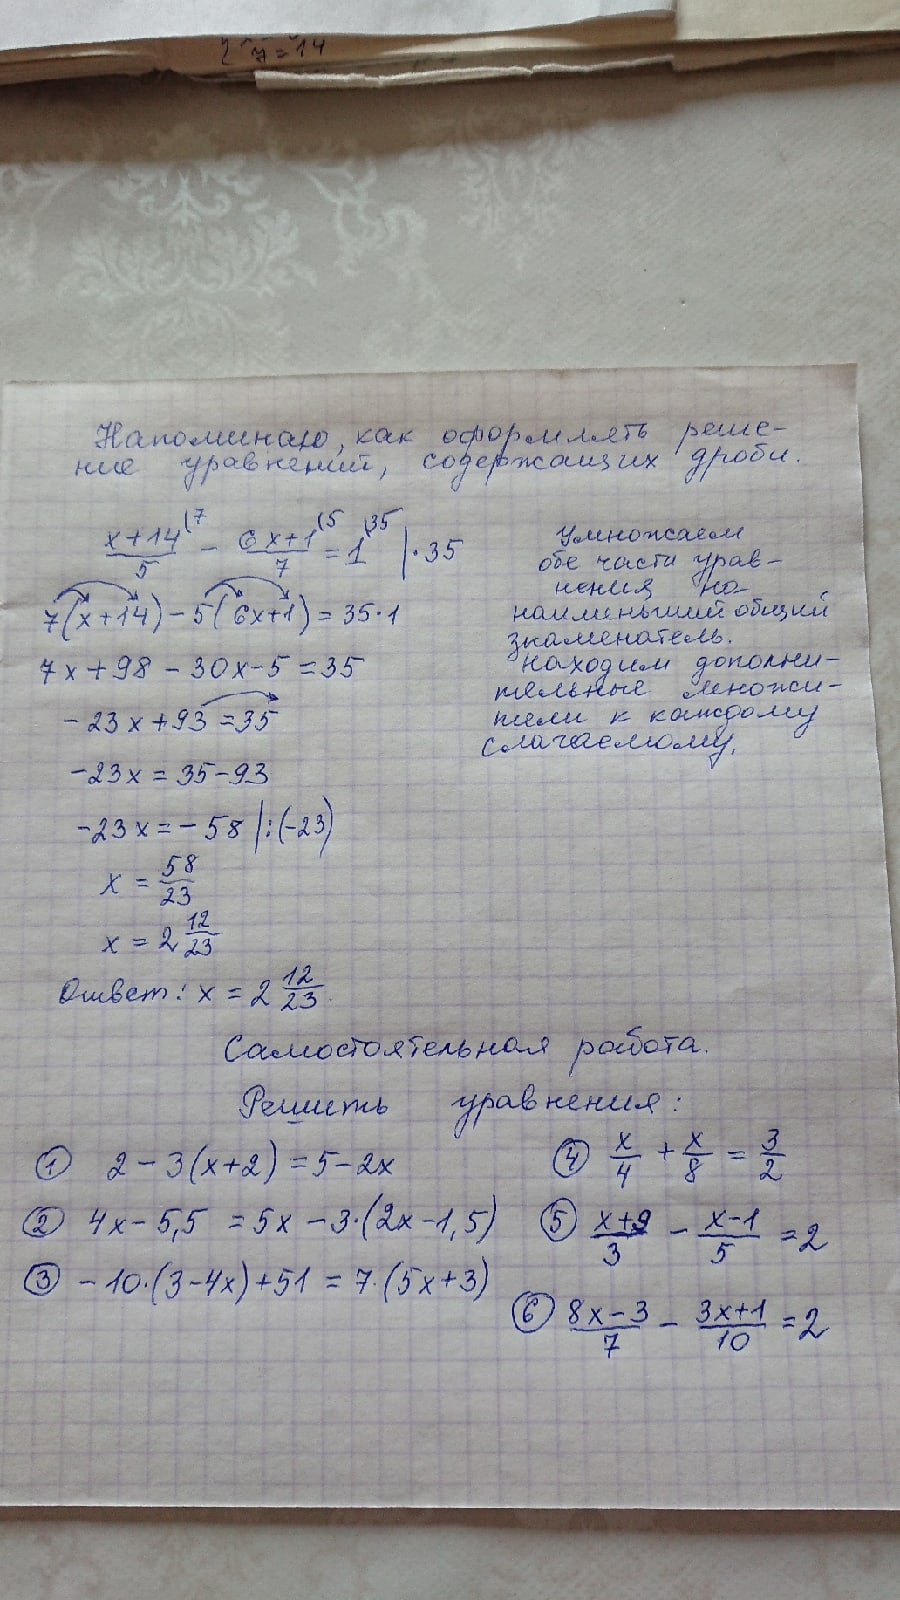 y = 14
Напоминаю, как оформлять реше-
ние уравнений, содержащих дроби.
(x+14)/5 ⁽⁷ - (6x+1)/7 ⁽⁵ = 1 ⁽³⁵ | · 35
7(x+14) - 5(6x+1) = 35·1
7x + 98 - 30x - 5 = 35
-23x + 93 = 35
-23x = 35 - 93
-23x = -58 | : (-23)
x = 58/23
x = 2 12/23
Ответ: x = 2 12/23.
Умножаем
обе части урав-
нения на
наименьший общий
знаменатель.
Находим дополни-
тельные множи-
тели к каждому
слагаемому.
Самостоятельная работа.
Решить уравнения:
① 2 - 3(x+2) = 5 - 2x
② 4x - 5,5 = 5x - 3·(2x - 1,5)
③ -10·(3-4x) + 51 = 7·(5x+3)
④ x/4 + x/8 = 3/2
⑤ (x+9)/3 - (x-1)/5 = 2
⑥ (8x-3)/7 - (3x+1)/10 = 2